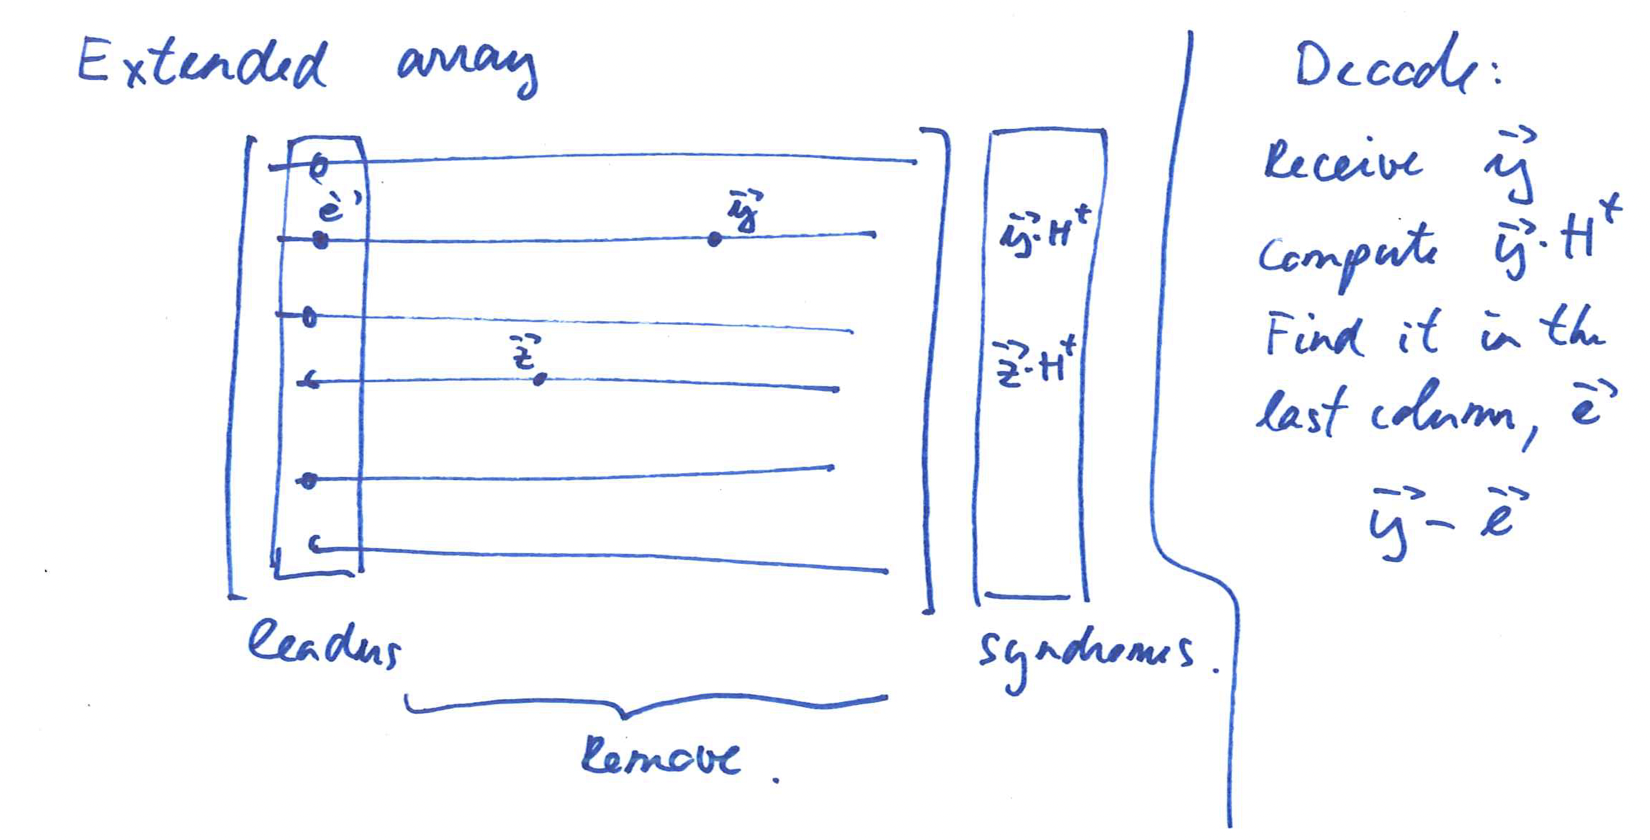 Extended array
e⃗
y⃗
y⃗·Hᵗ
z⃗
z⃗·Hᵗ
leaders
syndromes.
Remove.
Decode:
Receive y⃗
Compute y⃗·Hᵗ
Find it in the
last column, e⃗
y⃗ − e⃗